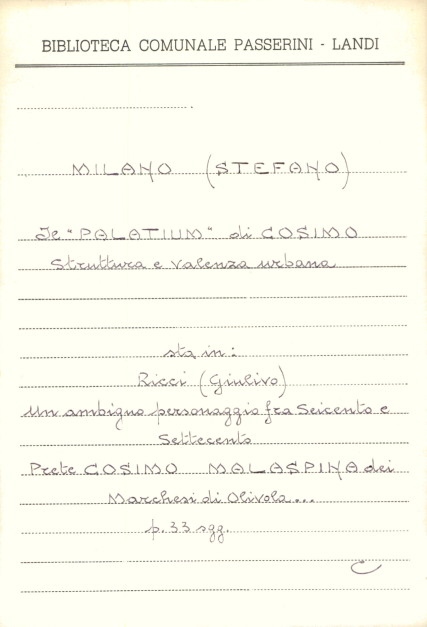 BIBLIOTECA COMUNALE PASSERINI - LANDI
MILANO (STEFANO)
Il "PALATIUM" di COSIMO
Struttura e valenza urbana
sta in:
Ricci (Giulivo)
Un ambiguo personaggio fra Seicento e
Settecento
Prete COSIMO MALASPINA dei
Marchesi di Olivola...
p. 33 sgg.
C